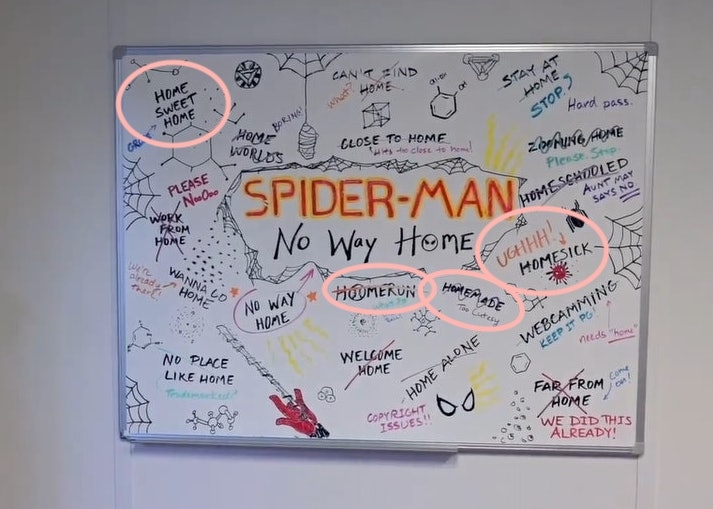 HOME
SWEET
HOME
CAN'T FIND
HOME
what?
STAY AT
HOME
STOP
Hard pass.
BORING!
HOME
WORLDS
CLOSE TO HOME
Hits to close to home!
ZOOMING HOME
Please Stop.
HOMESCHOOLED
AUNT MAY
SAYS NO
PLEASE
NooOoo
WORK
FROM
HOME
SPIDER-MAN
No Way Home
UGHHH!
HOMESICK
We're
already
there!
WANNA GO
HOME
NO WAY
HOME
HOUMERUN
HOMEMADE
Too Cutesy
WEBCAMMING
KEEP IT PG!
needs "home"
NO PLACE
LIKE HOME
Trademarked!
WELCOME
HOME
HOME ALONE
COPYRIGHT
ISSUES!!
FAR FROM
HOME
come on!
WE DID THIS
ALREADY!